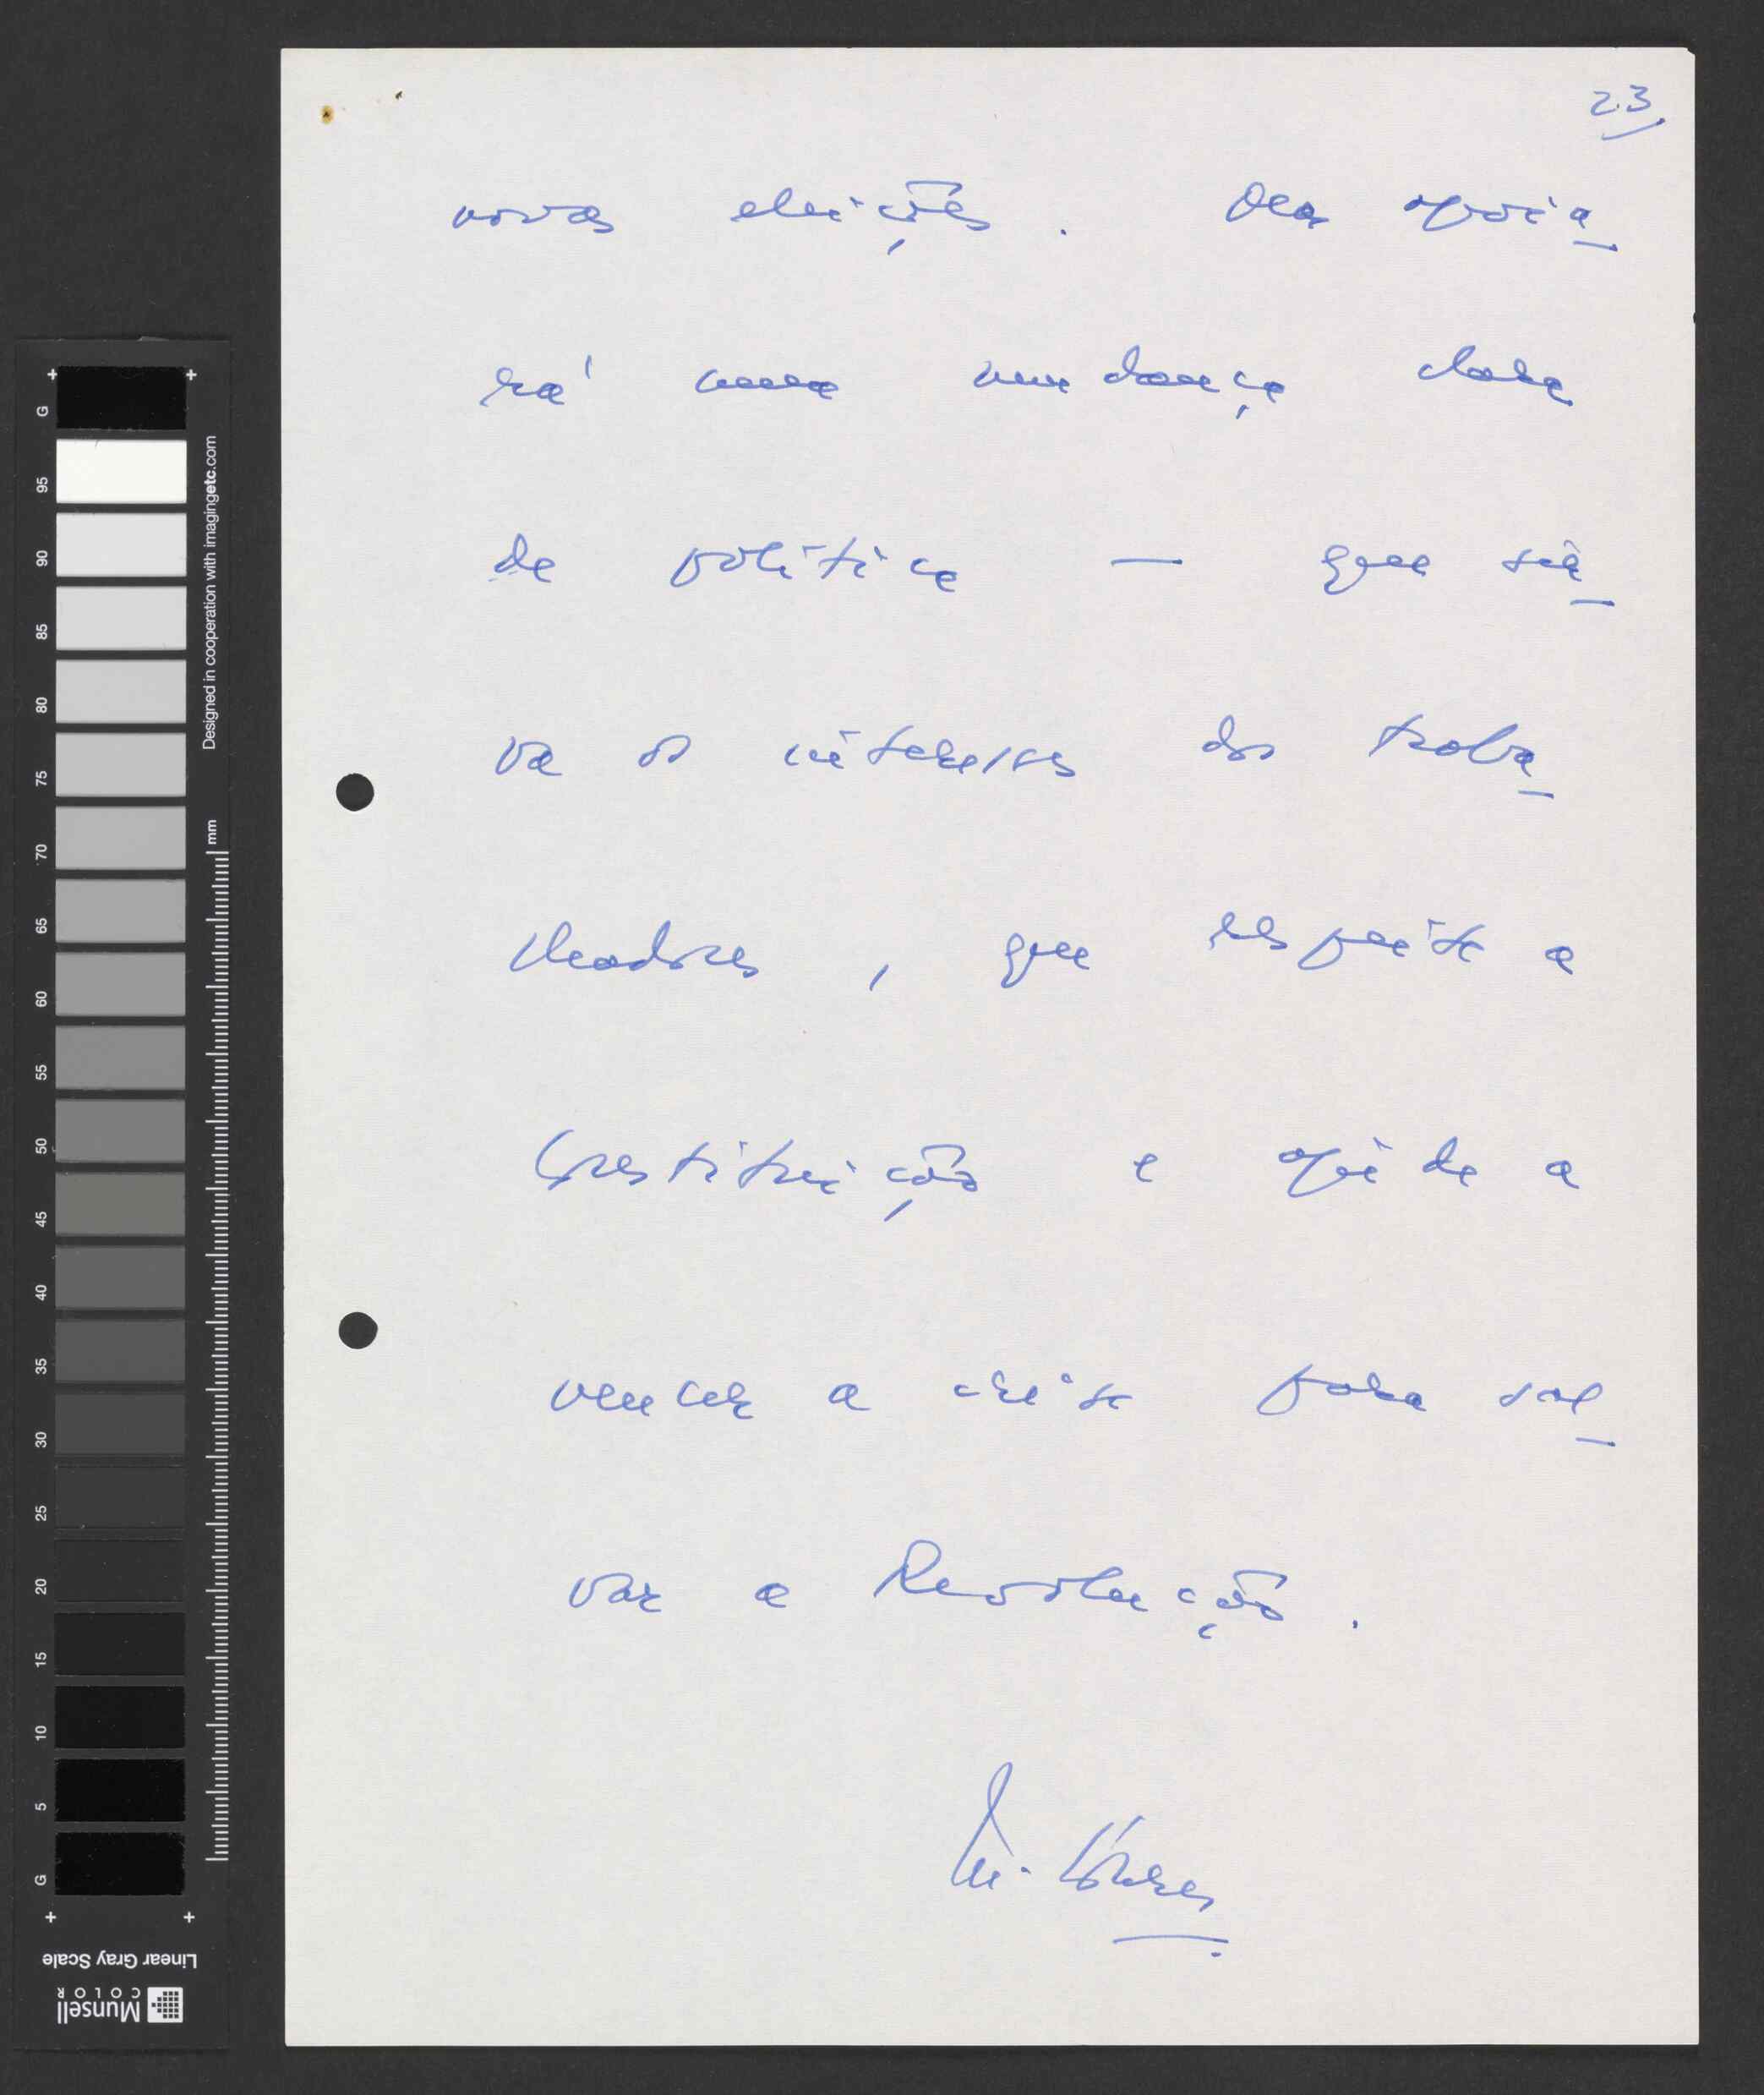 23
novas eleições. Mas apoia
rá uma mudança clara
de política — que sir
va os interesses dos traba
lhadores, que respeite a
Constituição e ajude a
vencer a crise para sal
var a Revolução.
M. Soares
G
95
90
85
80
75
70
65
60
55
50
45
40
35
30
25
20
15
10
5
G
Designed in cooperation with imagingetc.com
mm
Linear Gray Scale
Munsell
COLOR